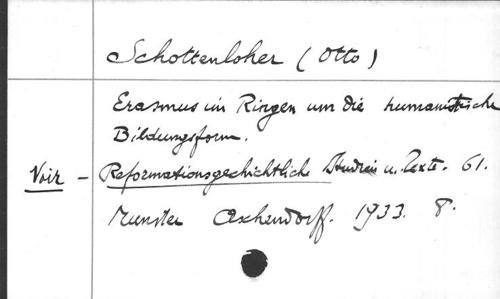 Schottenloher (Otto)
Erasmus im Ringen um die humanistische
Bildungsform.
Voir - Reformationsgechichtliche Studien u. Texte. 61.
Munster Aschendorff. 1933. 8°.